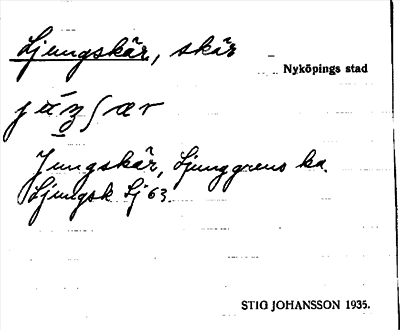 Ljungskär, skär
Nyköpings stad
Jungskär, Ljunggrens ka.
Ljungsk Lj 63.
STIG JOHANSSON 1935.